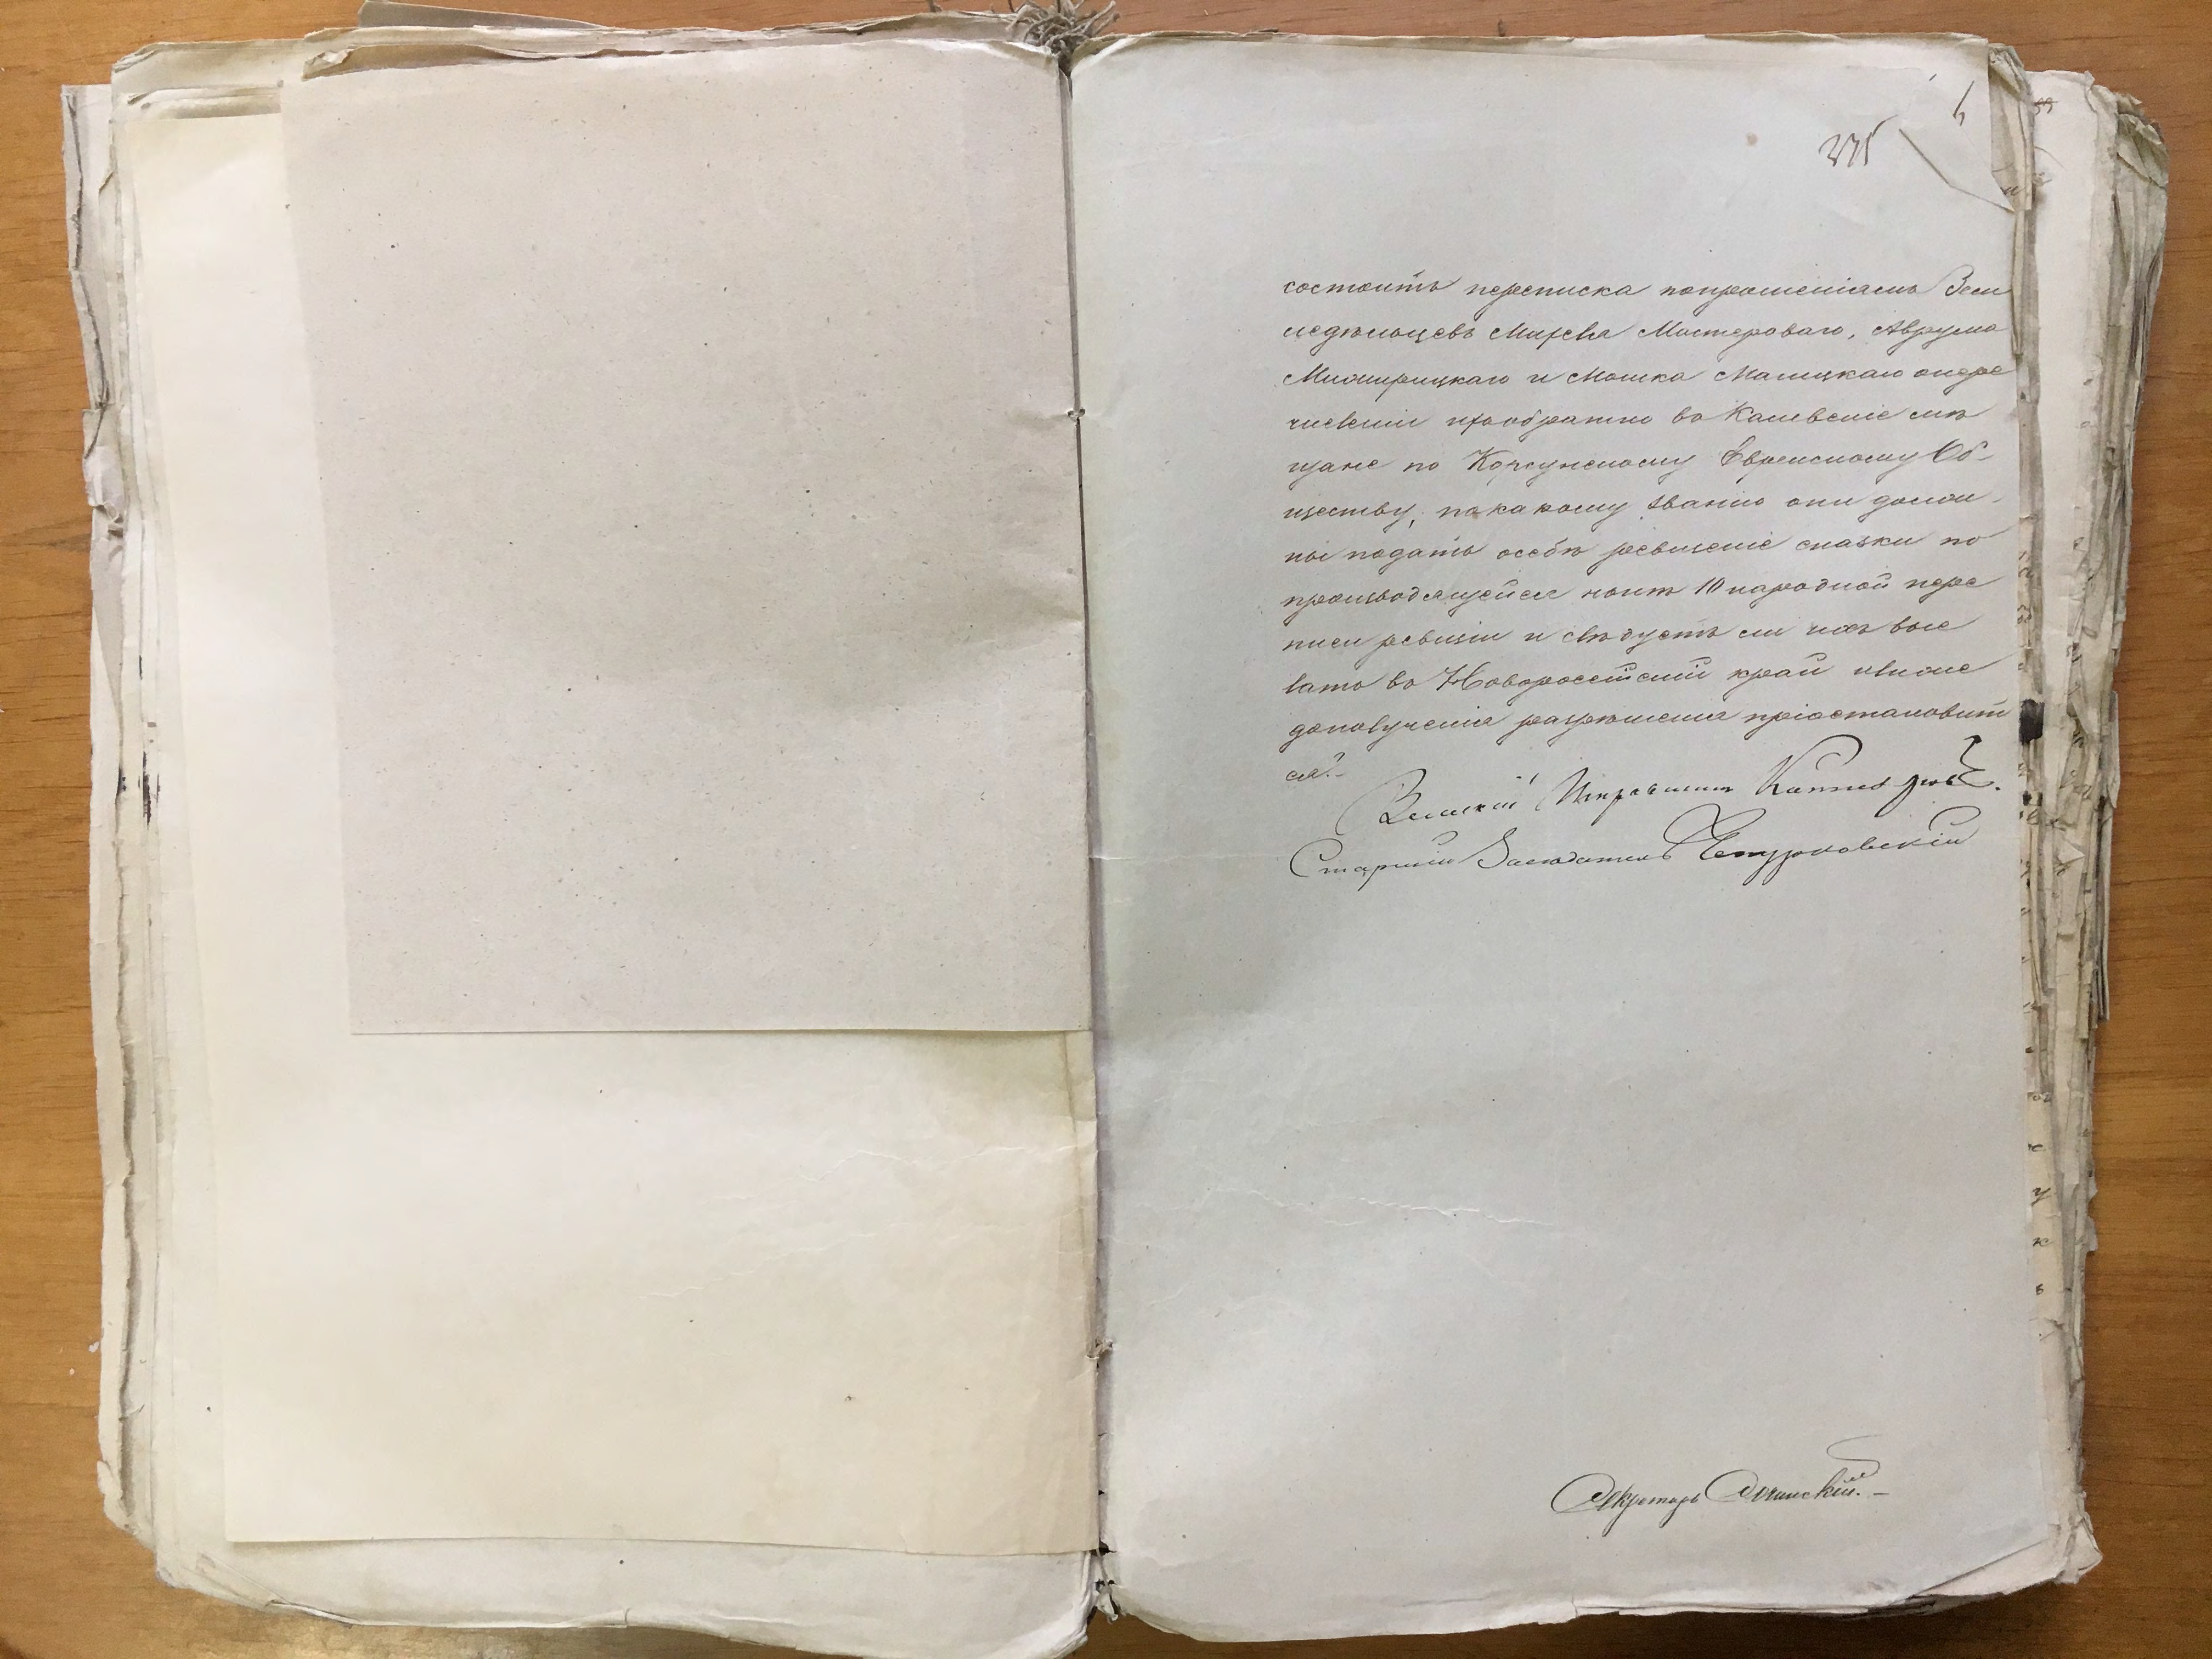 335
состоитъ переписка попрошеніямъ Зем
ледѣльцевъ Мастероваго, Аврума
Мижирицкаго и Мошка Малицкаго опере
численіи ихъ обратно въ Каневскіе мѣ
щане по Корсунскому Еврейскому Об-
ществу, покакому званію они долж-
ны подать особѣ ревизскіе сказки по
производящейся нынѣ 10 народной пере
писи ревизіи и слѣдуетъ ли ихъ высе
лять въ Новороссійскій край или же
дополученія разрѣшенія пріостановит
ся?-
Земскій Исправникъ
Старшій Засѣдатель
Секретарь